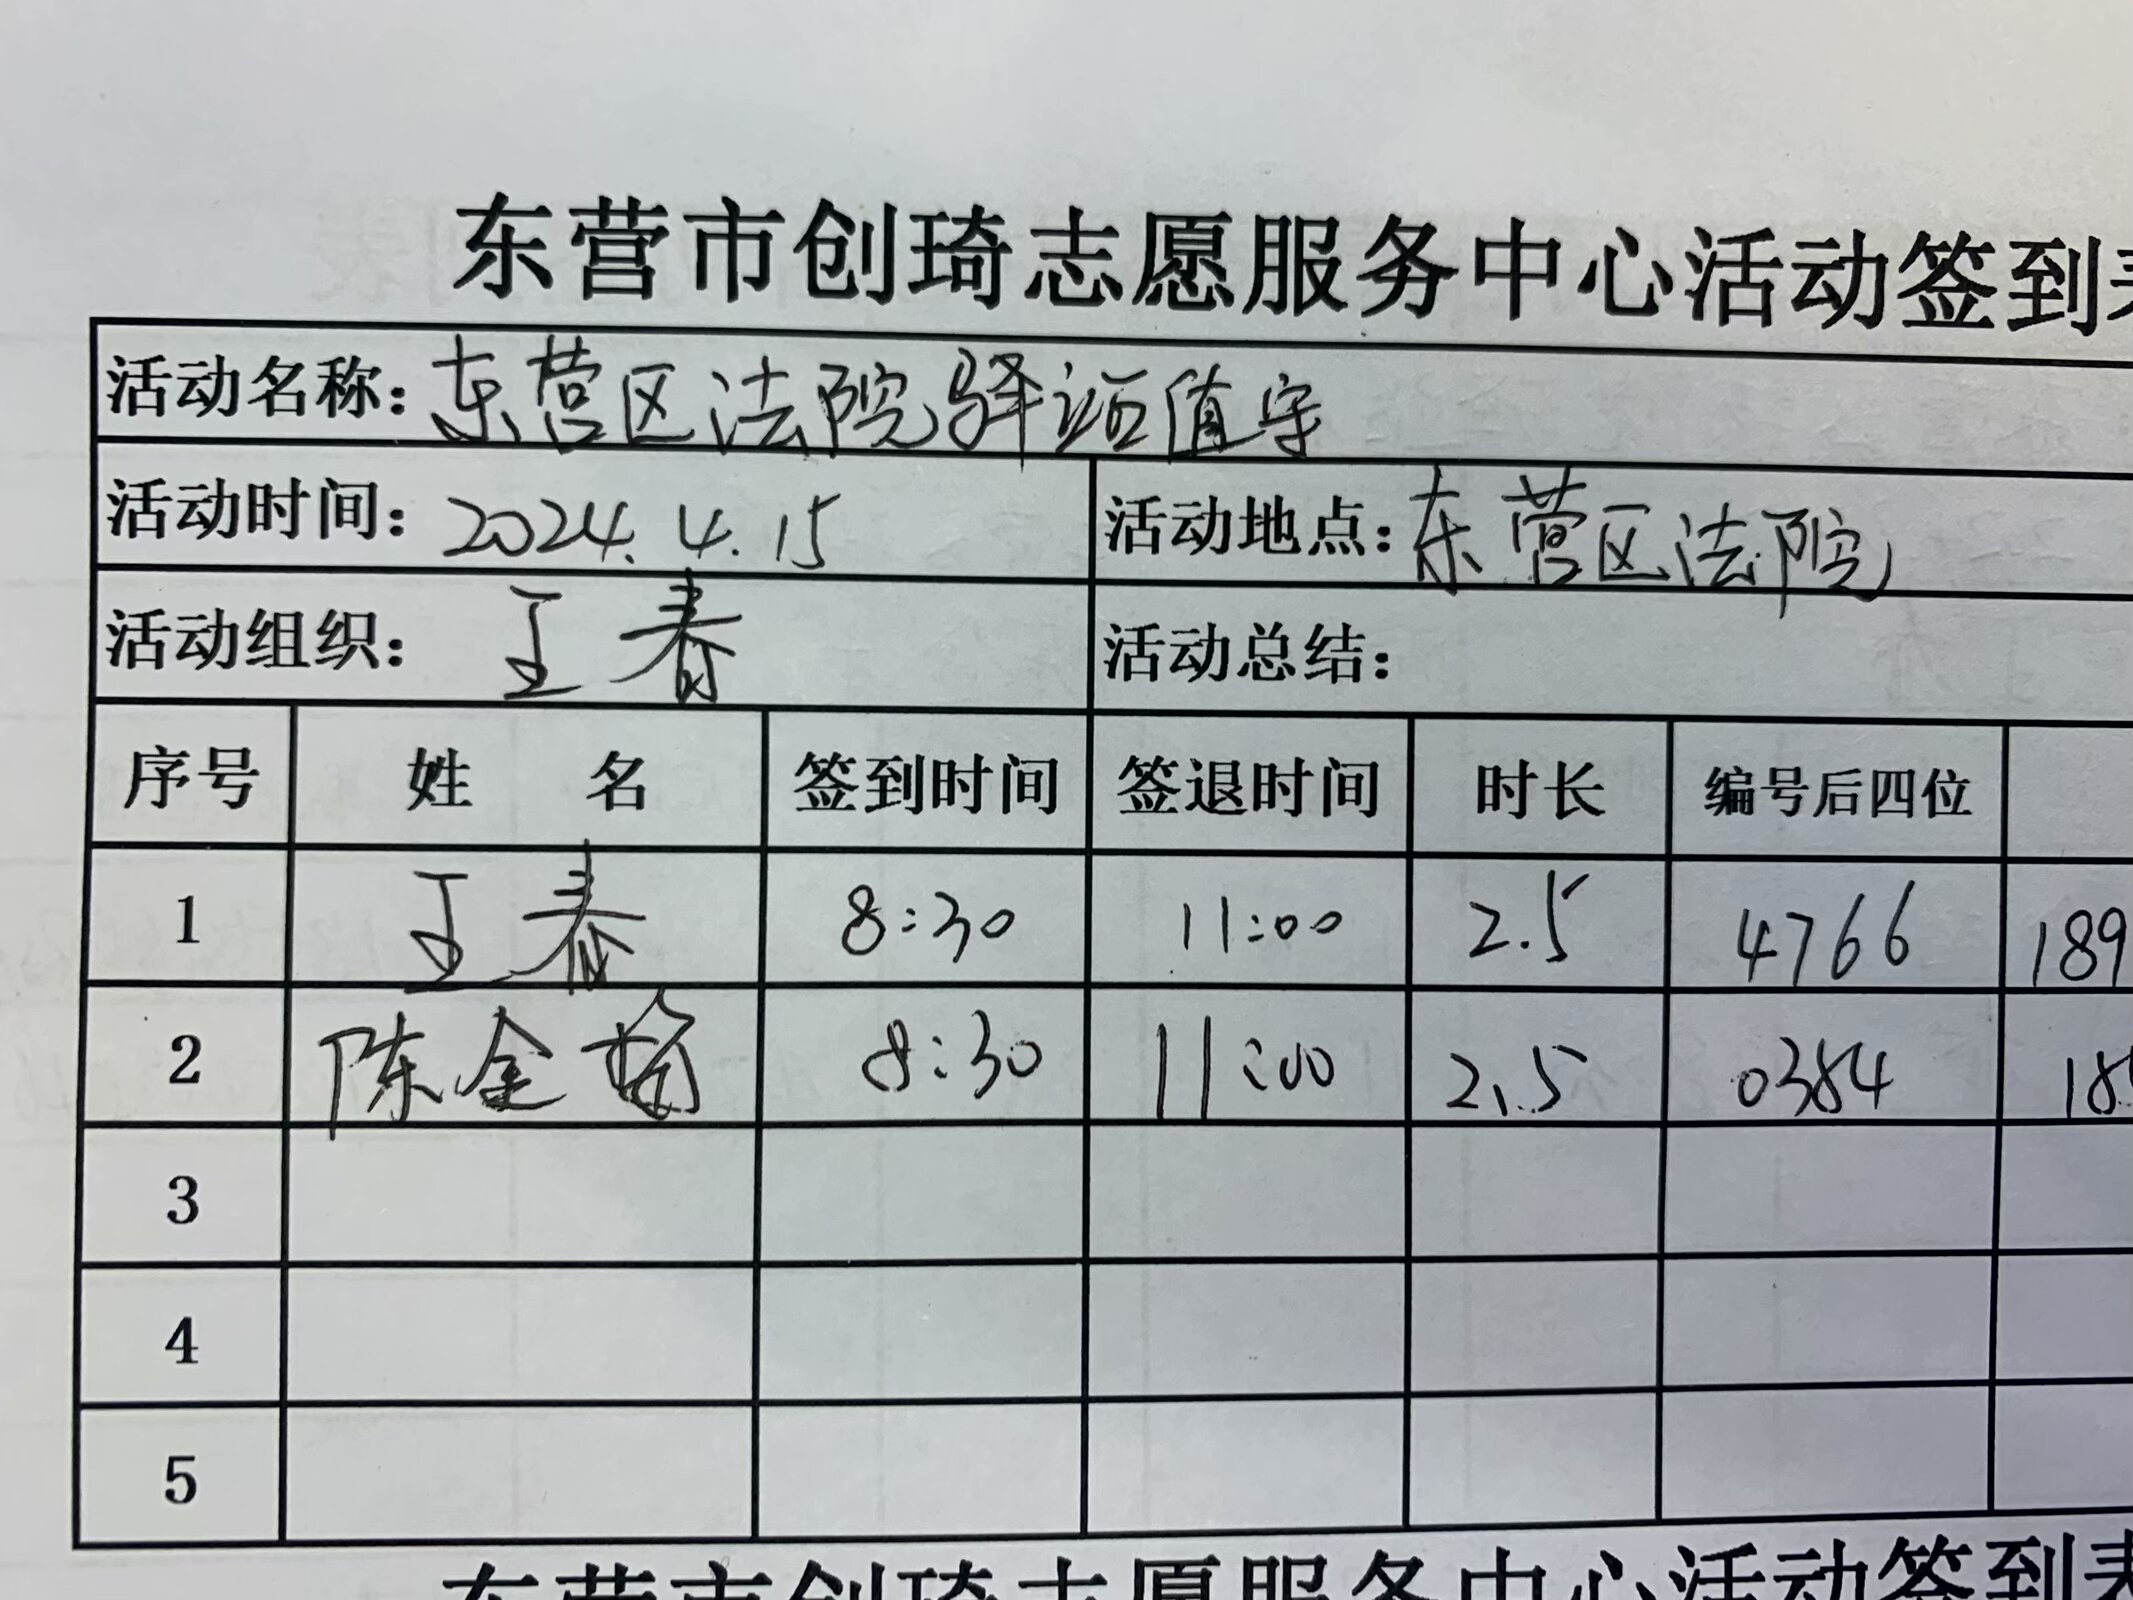 东营市创琦志愿服务中心活动签到表
活动名称：东营区法院驿站值守
活动时间：2024.4.15 活动地点：东营区法院
活动组织：王春 活动总结：
序号 姓名 签到时间 签退时间 时长 编号后四位
1 王春 8:30 11:00 2.5 4766 189
2 陈金梅 8:30 11:00 2.5 0384 18
3
4
5
东营市创琦志愿服务中心活动签到表